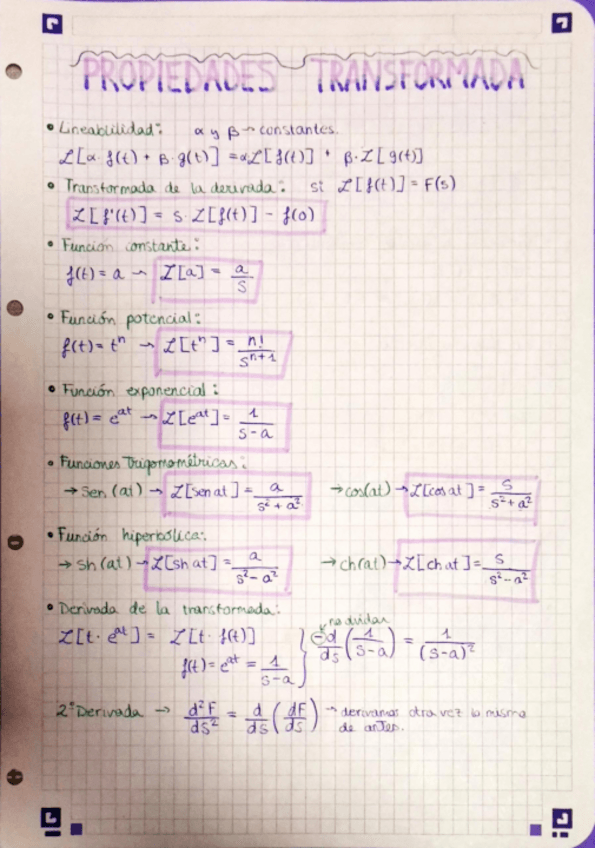 PROPIEDADES TRANSFORMADA
• Lineabilidad: α y β → constantes.
ℒ[α·f(t) + β·g(t)] = α·ℒ[f(t)] + β·ℒ[g(t)]
• Transformada de la derivada: si ℒ[f(t)] = F(s)
ℒ[f'(t)] = s·ℒ[f(t)] - f(0)
• Función constante:
f(t) = a → ℒ[a] = a/s
• Función potencial:
f(t) = tⁿ → ℒ[tⁿ] = n!/sⁿ⁺¹
• Función exponencial:
f(t) = eᵃᵗ → ℒ[eᵃᵗ] = 1/(s-a)
• Funciones Trigonométricas:
→ Sen (at) → ℒ[sen at] = a/(s²+a²) → cos(at) → ℒ[cos at] = s/(s²+a²)
• Función hiperbólica:
→ sh (at) → ℒ[sh at] = a/(s²-a²) → ch(at) → ℒ[ch at] = s/(s²-a²)
• Derivada de la transformada:
no olvidar
ℒ[t·eᵃᵗ] = ℒ[t·f(t)] } - d/ds (1/(s-a)) = 1/(s-a)²
f(t) = eᵃᵗ = 1/(s-a)
2ª Derivada → d²F/ds² = d/ds (dF/ds) → derivamos otra vez lo mismo
de antes.